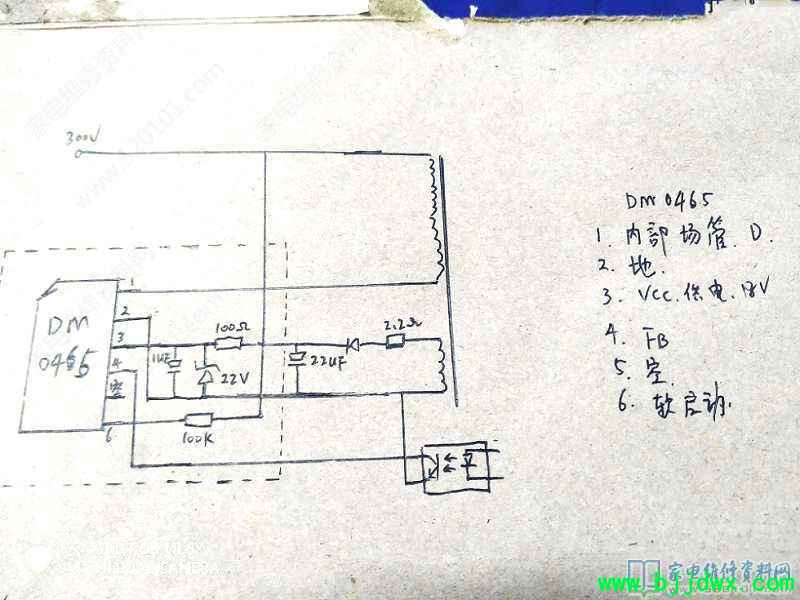 300V
DM
0465
1
2
3
4
空
6
100Ω
1UF
22V
22UF
2.2Ω
100K
DM0465
1. 内部场管.D.
2. 地.
3. VCC.供电.18V
4. FB
5. 空.
6. 软启动.
家电维修资料网
www.bjjdwx.com